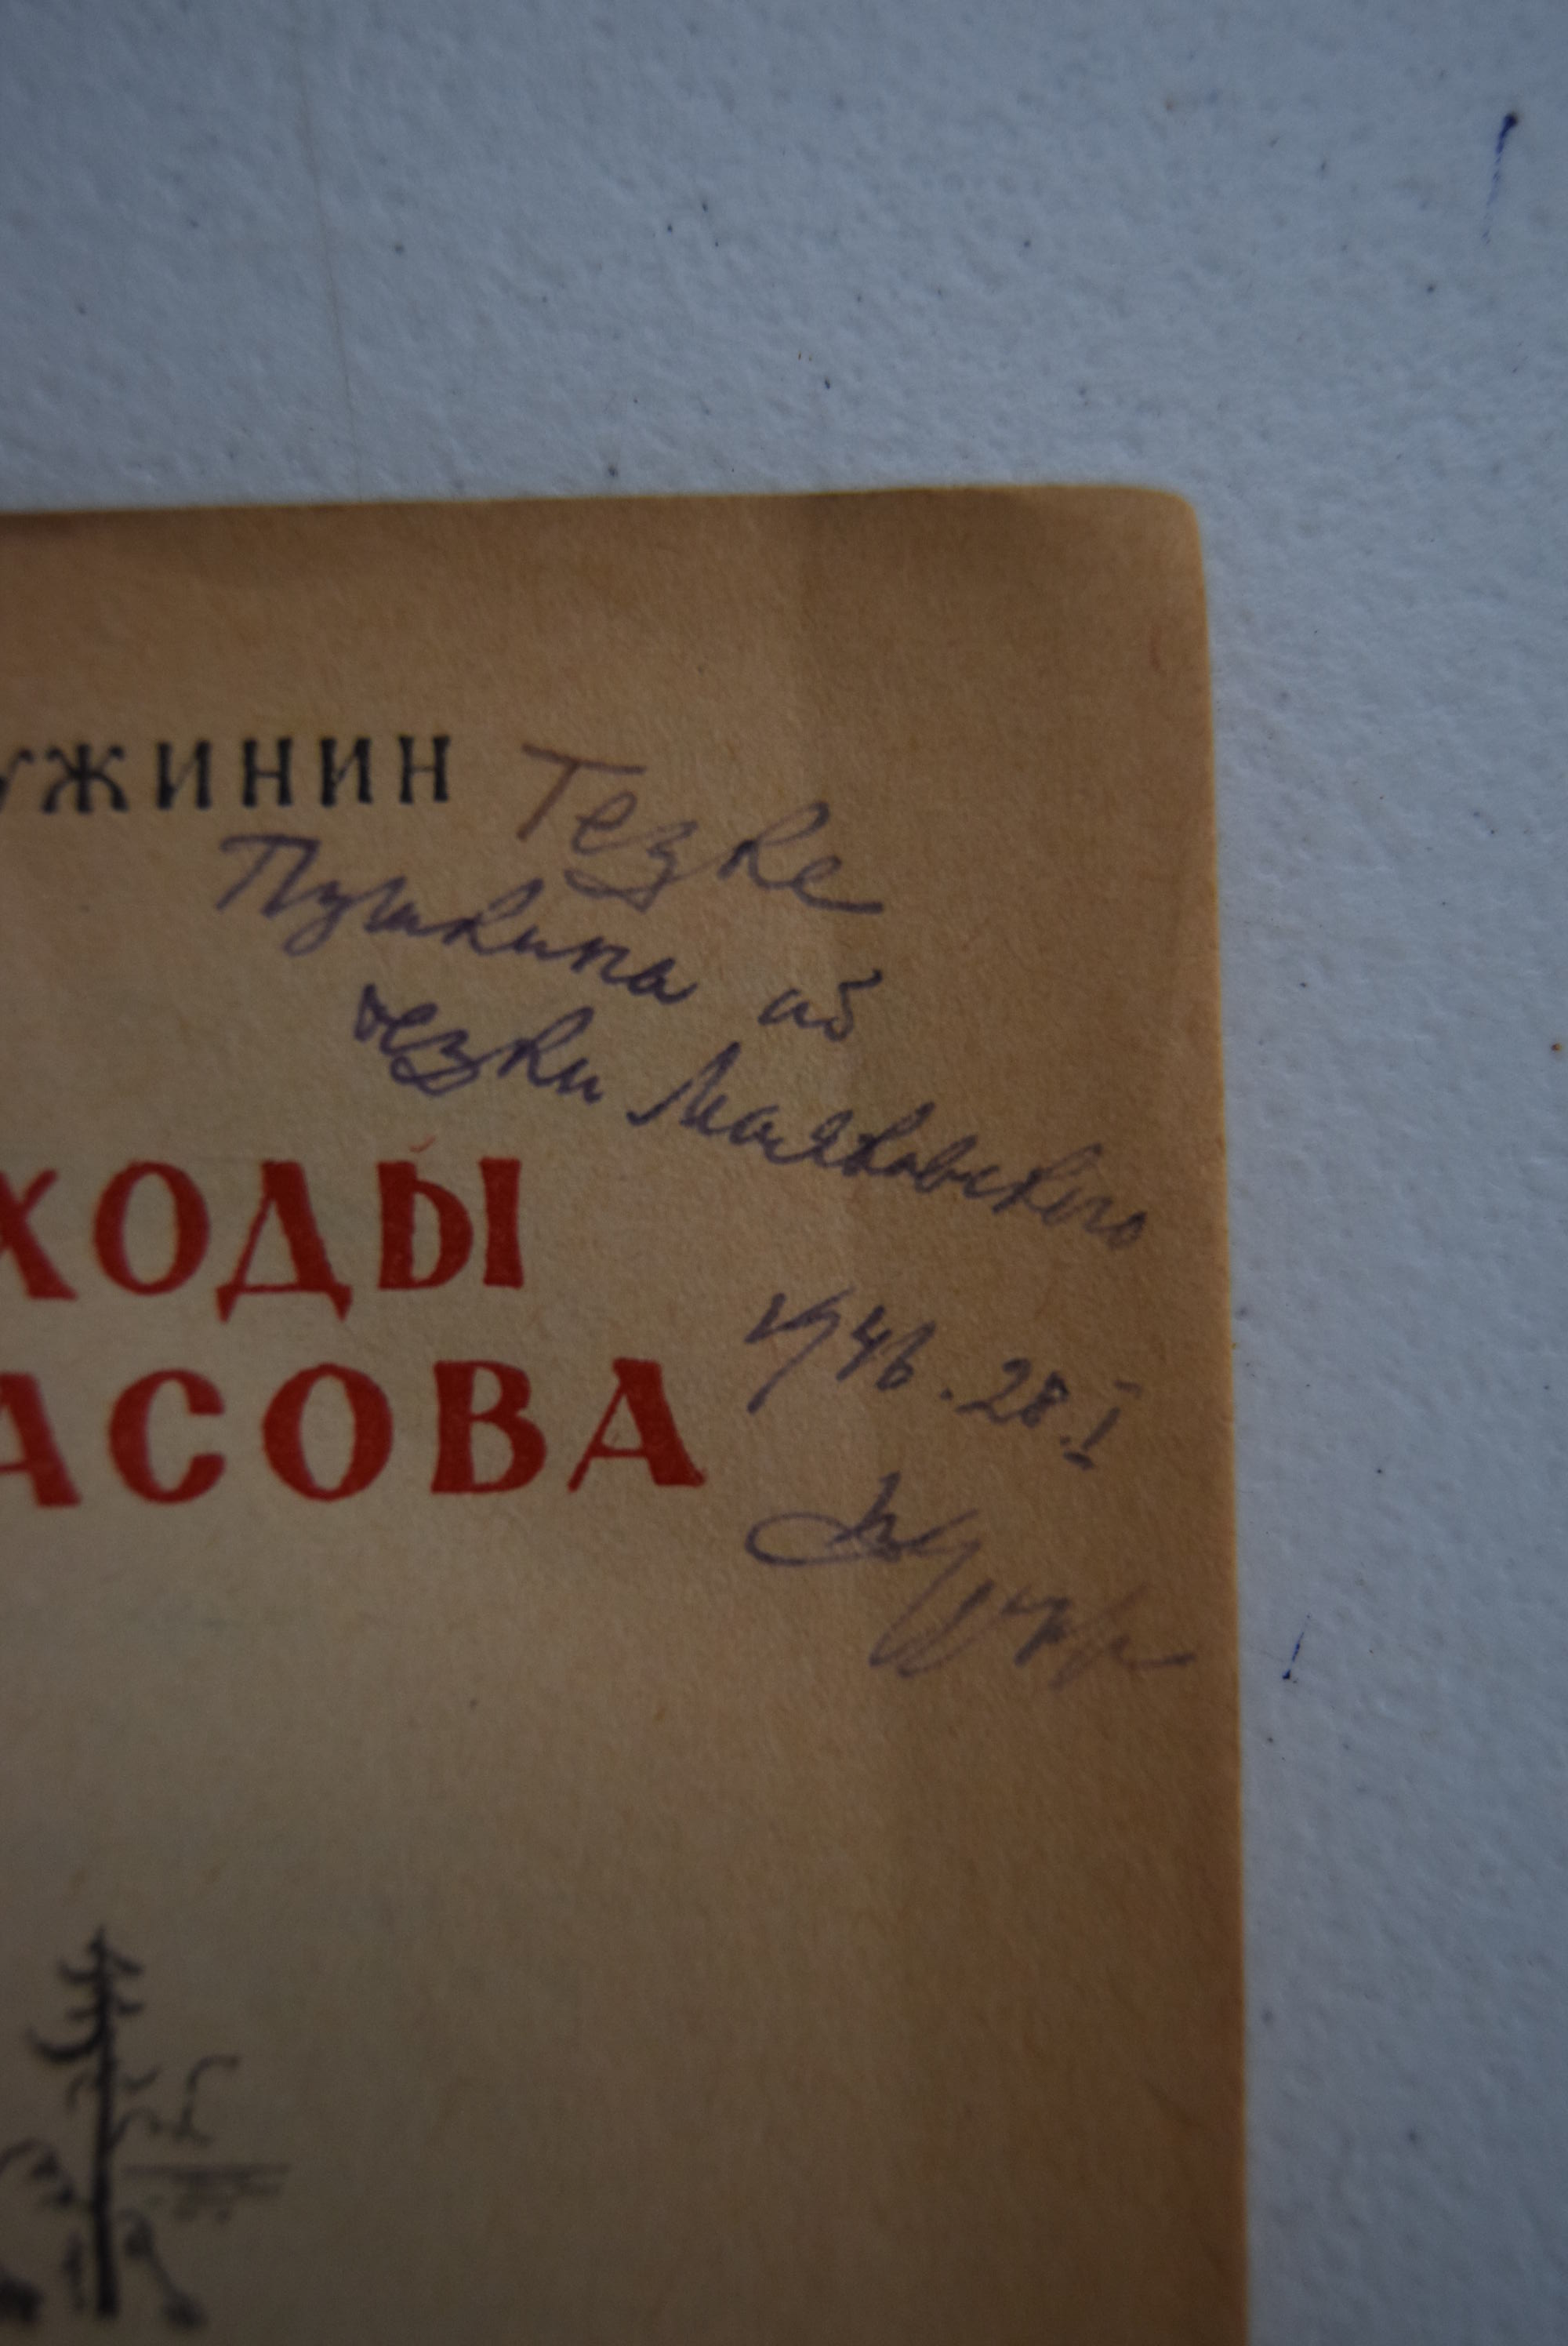 УЖИНИН
Тезке
Пушкина от
тезки Маяковского
ХОДЫ
1946. 28.I
АСОВА